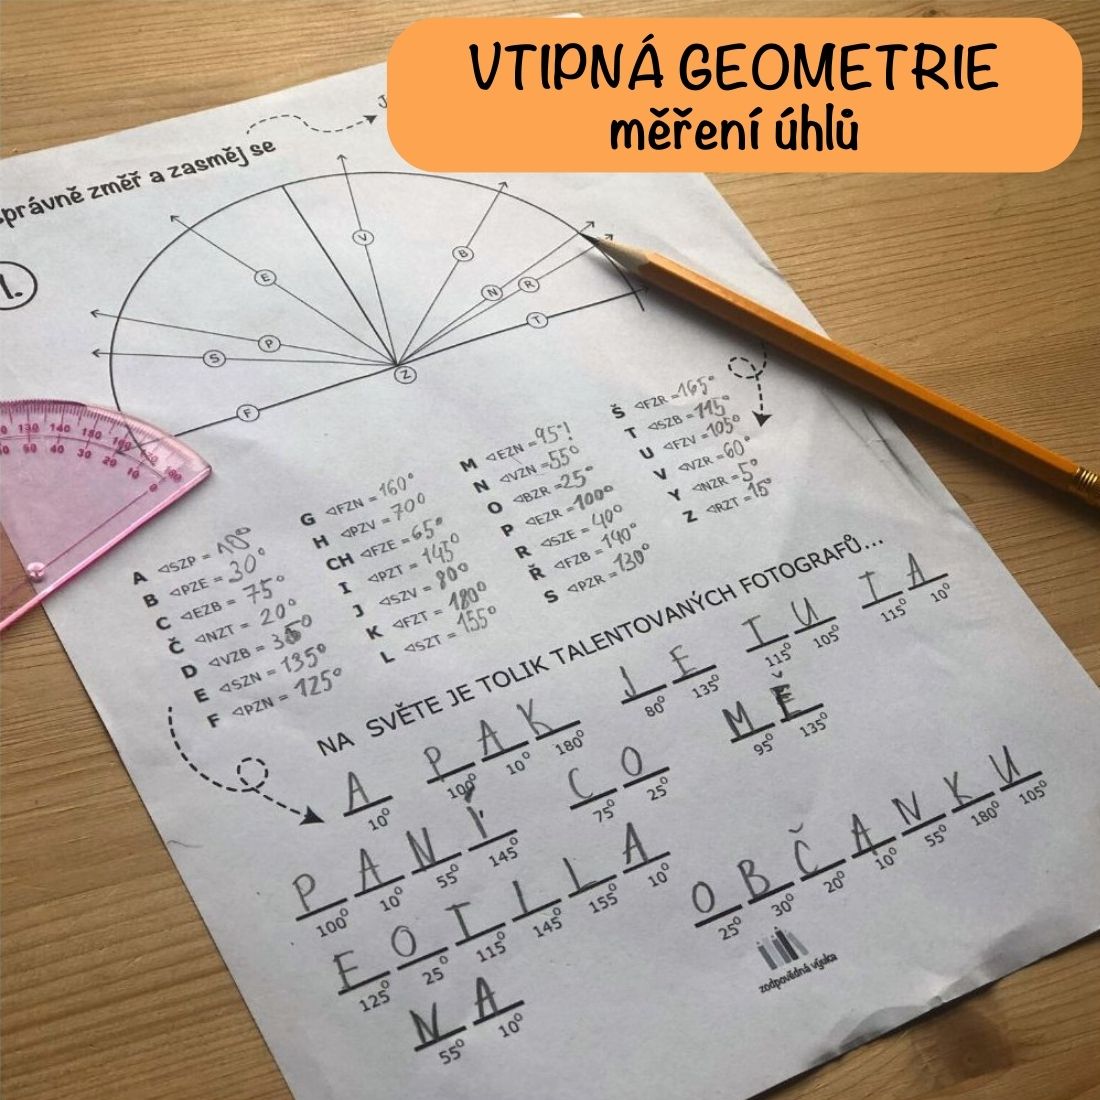 VTIPNÁ GEOMETRIE
měření úhlů
správně změř a zasměj se
J
1.
V
E
B
N
R
T
P
S
Z
F
A ⊲SZP = 10°
B ⊲PZE = 30°
C ⊲EZB = 75°
Č ⊲NZT = 20°
D ⊲VZB = 35°
E ⊲SZN = 135°
F ⊲PZN = 125°
G ⊲FZN = 160°
H ⊲PZV = 70°
CH ⊲FZE = 65°
I ⊲PZT = 145°
J ⊲SZV = 80°
K ⊲FZT = 180°
L ⊲SZT = 155°
M ⊲EZN = 95°!
N ⊲VZN = 55°
O ⊲BZR = 25°
P ⊲EZR = 100°
R ⊲SZE = 40°
Ř ⊲FZB = 140°
S ⊲PZR = 130°
Š ⊲FZR = 165°
T ⊲SZB = 115°
U ⊲FZV = 105°
V ⊲VZR = 60°
Y ⊲NZR = 5°
Z ⊲RZT = 15°
NA SVĚTE JE TOLIK TALENTOVANÝCH FOTOGRAFŮ...
A PAK JE TU TA
10° 100° 10° 180° 80° 135° 115° 105° 115° 10°
PANÍ CO MĚ
100° 10° 55° 145° 75° 25° 95° 135°
FOTILA
125° 25° 115° 145° 155° 10°
NA OBČANKU
55° 10° 25° 30° 20° 10° 55° 180° 105°
zodpovědná výuka